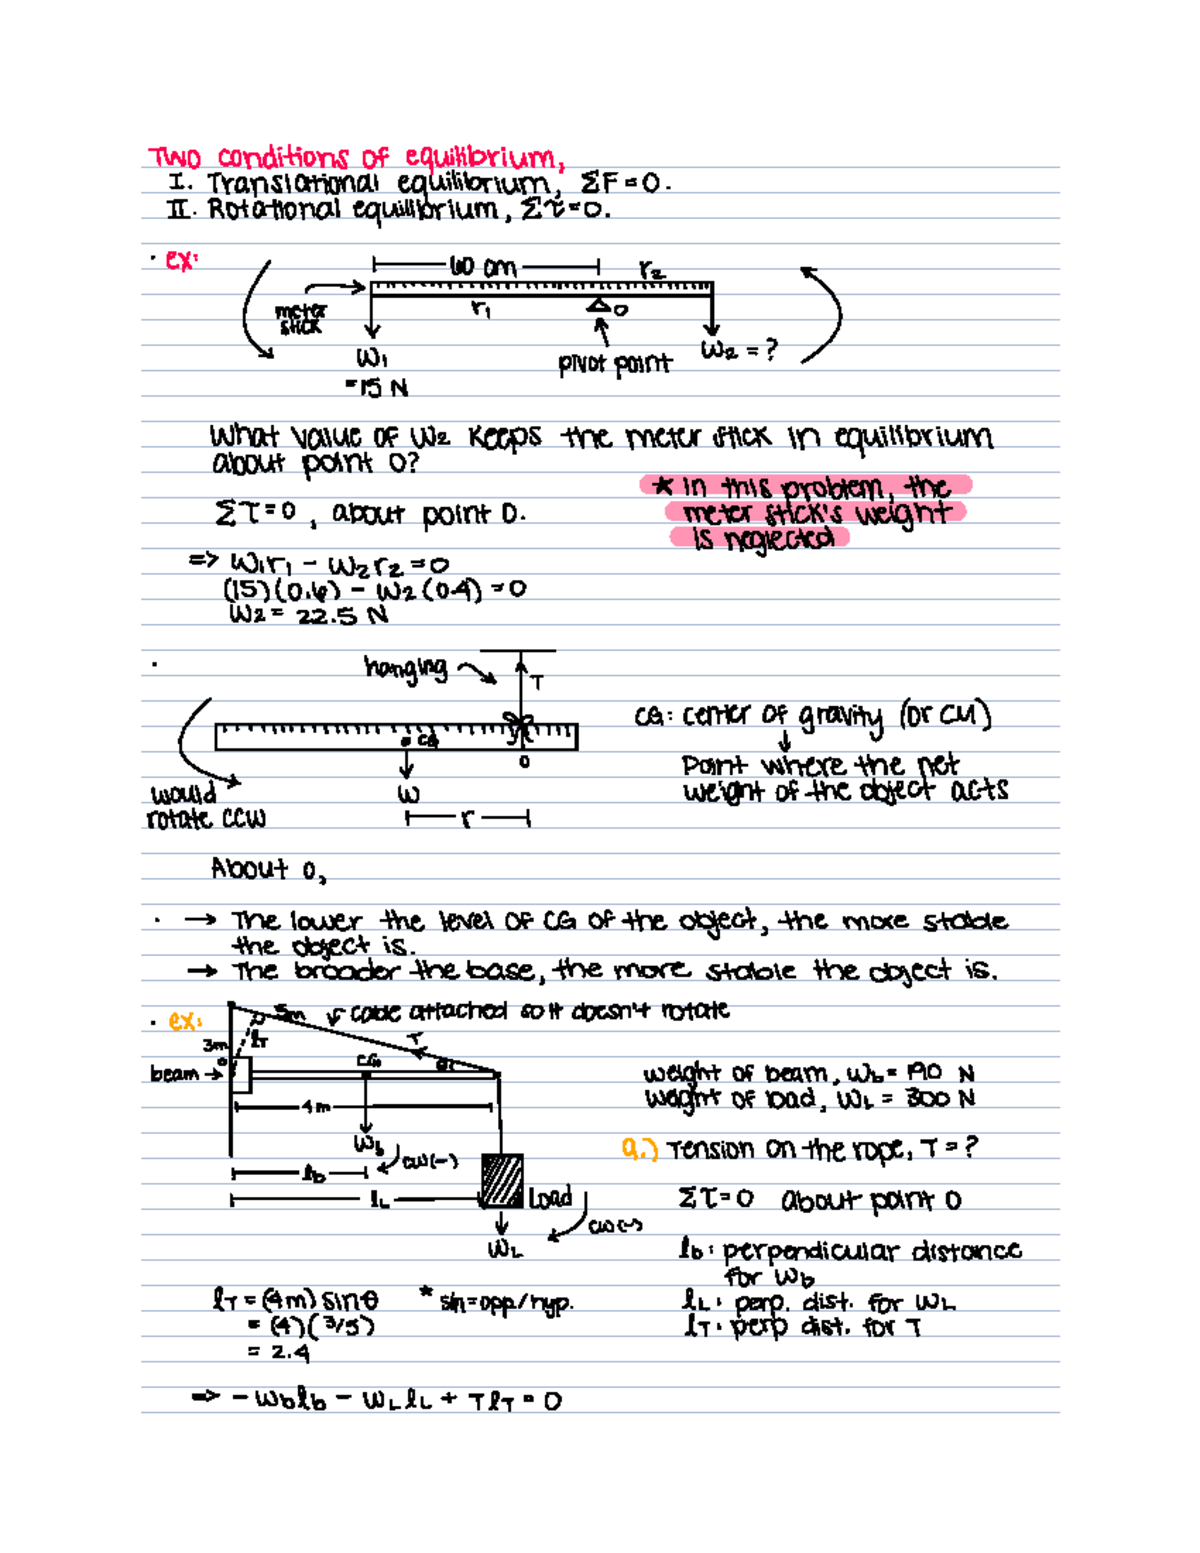 Two conditions of equilibrium,
I. Translational equilibrium, ΣF=0.
II. Rotational equilibrium, Στ=0.
· ex:
60 cm
r₂
meter
stick
r₁
O
W₁
=15 N
pivot point
W₂ = ?
What value of W₂ keeps the meter stick in equilibrium
about point O?
* in this problem, the
meter stick's weight
is neglected
Στ=0, about point O.
=> W₁r₁ - W₂r₂ = 0
(15)(0.6) - W₂(0.4) = 0
W₂ = 22.5 N
hanging
T
CG
O
would
rotate CCW
W
r
CG: center of gravity (or CM)
↓
Point where the net
weight of the object acts
About O,
· → The lower the level of CG of the object, the more stable
the object is.
→ The broader the base, the more stable the object is.
· ex:
5m
cable attached so it doesn't rotate
3m
lT
T
O
CG
θ
beam →
4m
Wb
CW(-)
lb
lL
Load
CW(-)
WL
weight of beam, Wb = 190 N
weight of load, WL = 300 N
a.) Tension on the rope, T = ?
Στ=0 about point O
lb: perpendicular distance
for Wb
lL: perp. dist. for WL
lT: perp dist. for T
lT = (4m) sinθ
* sin=opp/hyp.
= (4)(3/5)
= 2.4
=> - Wblb - WLlL + TlT = 0